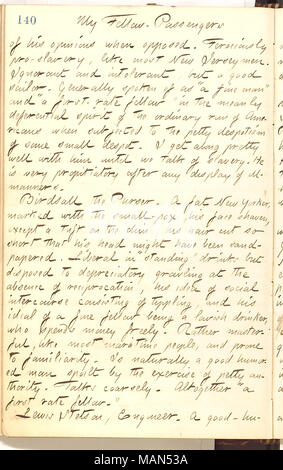 140
My Fellow-Passengers
of his opinions when opposed. Ferociously
pro-slavery, like most New Jerseymen.
Ignorant and intolerant but a good
sailor. Generally spoken of as "a fine man"
and "a first rate fellow" in the meanly
deferential spirit of the ordinary run of Ame-
ricans when subjected to the petty despotism
of some small despot. I get along pretty
well with him until we talk of slavery. He
is very propitiatory after any display of ill-
manners.
Birdsall the Purser. A fat New Yorker,
marked with the small-pox, his face shaven,
except a tuft on the chin, his hair cut so
short that his head might have been sand-
papered. Liberal in "standing" drinks but
disposed to depreciatory growling at the
absence of reciprocation, his idea of social
intercourse consisting of tippling, and his
ideal of a fine fellow being a lavish drinker,
who spends money freely. Rather master-
ful, like most
people, and prone
to familiarity. Is naturally a good humor-
ed man spoilt by the exercise of petty au-
thority. Talks coarsely. Altogether "a
first rate fellow."
Lewis
, Engineer. A good-hu-
alamy
Image ID: MAN53A
www.alamy.com